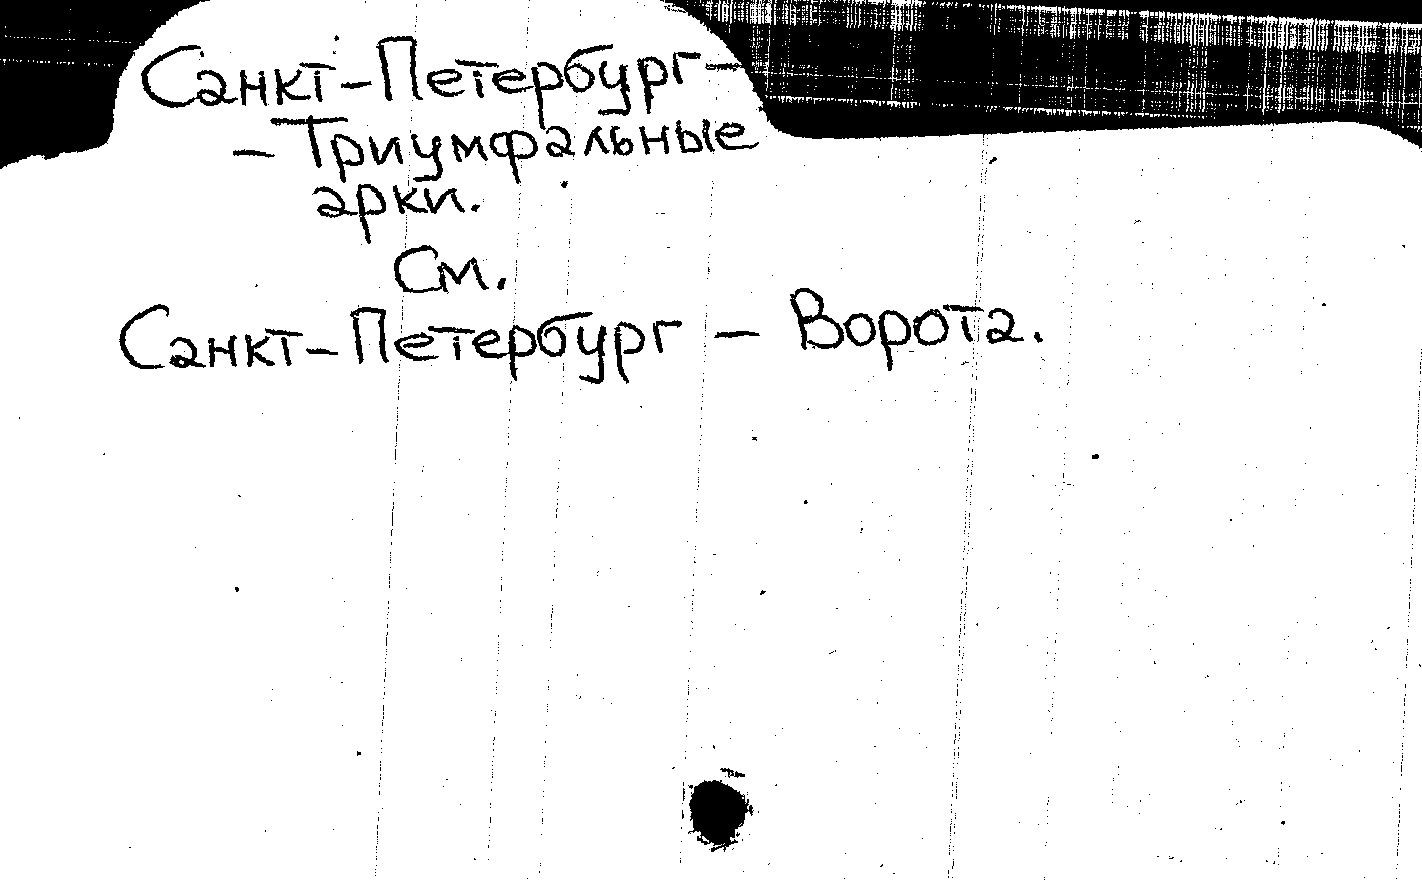 Санкт-Петербург-
- Триумфальные
арки.
См.
Санкт-Петербург - Ворота.